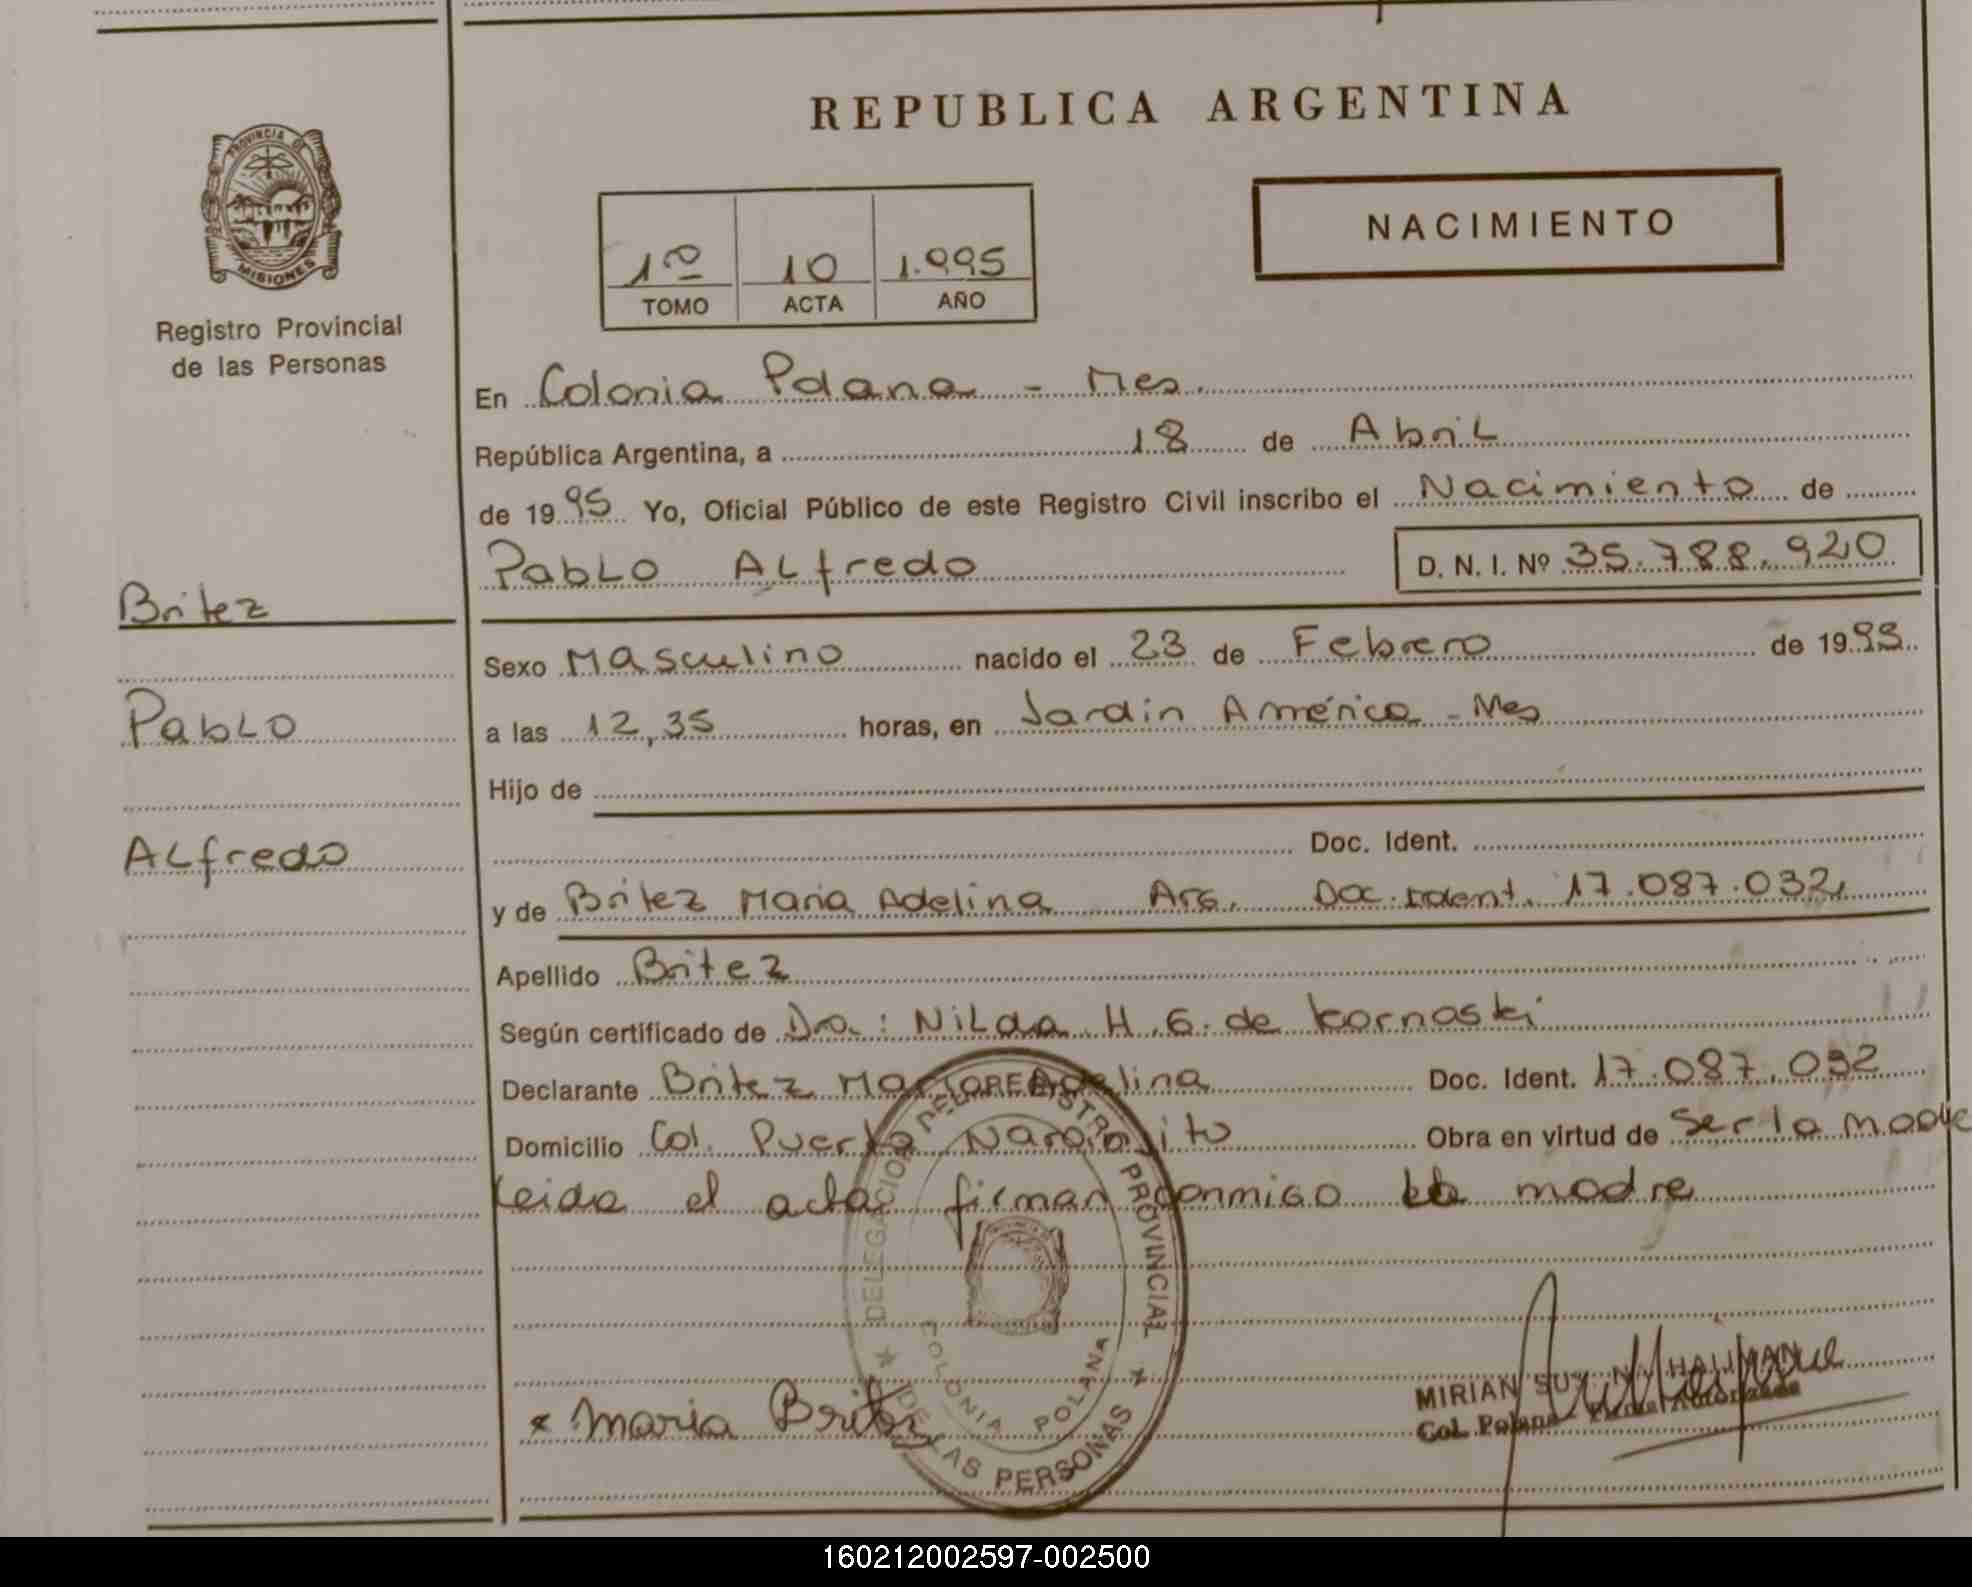 REPUBLICA ARGENTINA
PROVINCIA DE
MISIONES
Registro Provincial
de las Personas
NACIMIENTO
1º 10 1.995
TOMO ACTA AÑO
En Colonia Polana - Mes.
República Argentina, a 18 de Abril
de 1995 Yo, Oficial Público de este Registro Civil inscribo el Nacimiento de
Pablo Alfredo D. N. I. Nº 35.788.920
Britez
Pablo
Alfredo
Sexo Masculino nacido el 23 de Febrero de 1995
a las 12,35 horas, en Jardin América - Mes
Hijo de
Doc. Ident.
y de Britez Maria Adelina Arg. Doc. Ident. 17.087.032
Apellido Britez
Según certificado de Dra.: Nilda H. G. de Kornoski
Declarante Britez Maria Adelina Doc. Ident. 17.087.032
Domicilio Col. Puerto Naranjito Obra en virtud de ser la madre
Leida el acta firman conmigo la madre
DELEGACION DEL REGISTRO PROVINCIAL
DE LAS PERSONAS
COLONIA POLANA
x Maria Britez
MIRIAN
Col. Polana
160212002597-002500